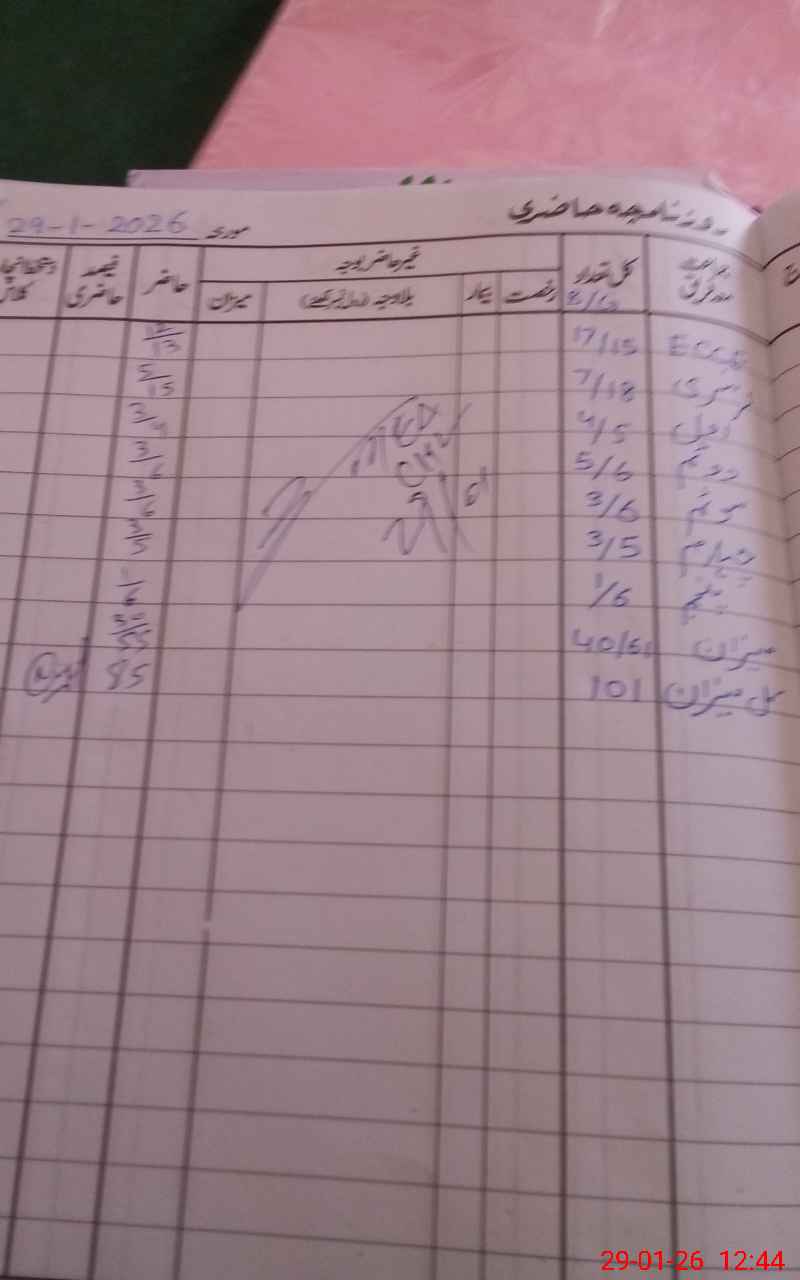 روزنامچہ حاضری
مورخہ 29-1-2026
جماعت مدرق کل تعداد غیر حاضر بوجہ حاضر فیصد حاضری
B/G رخصت بیمار بلاوجہ میزان
ECCE 17/15 12/13
نرسری 7/18 5/15
اول 4/5 3/4
دوئم 5/6 3/6
سوئم 3/6 3/6
چہارم 3/5 3/5
پنجم 1/6 1/6
میزان 40/61 30/55
کل میزان 101 85
29-01-26 12:44